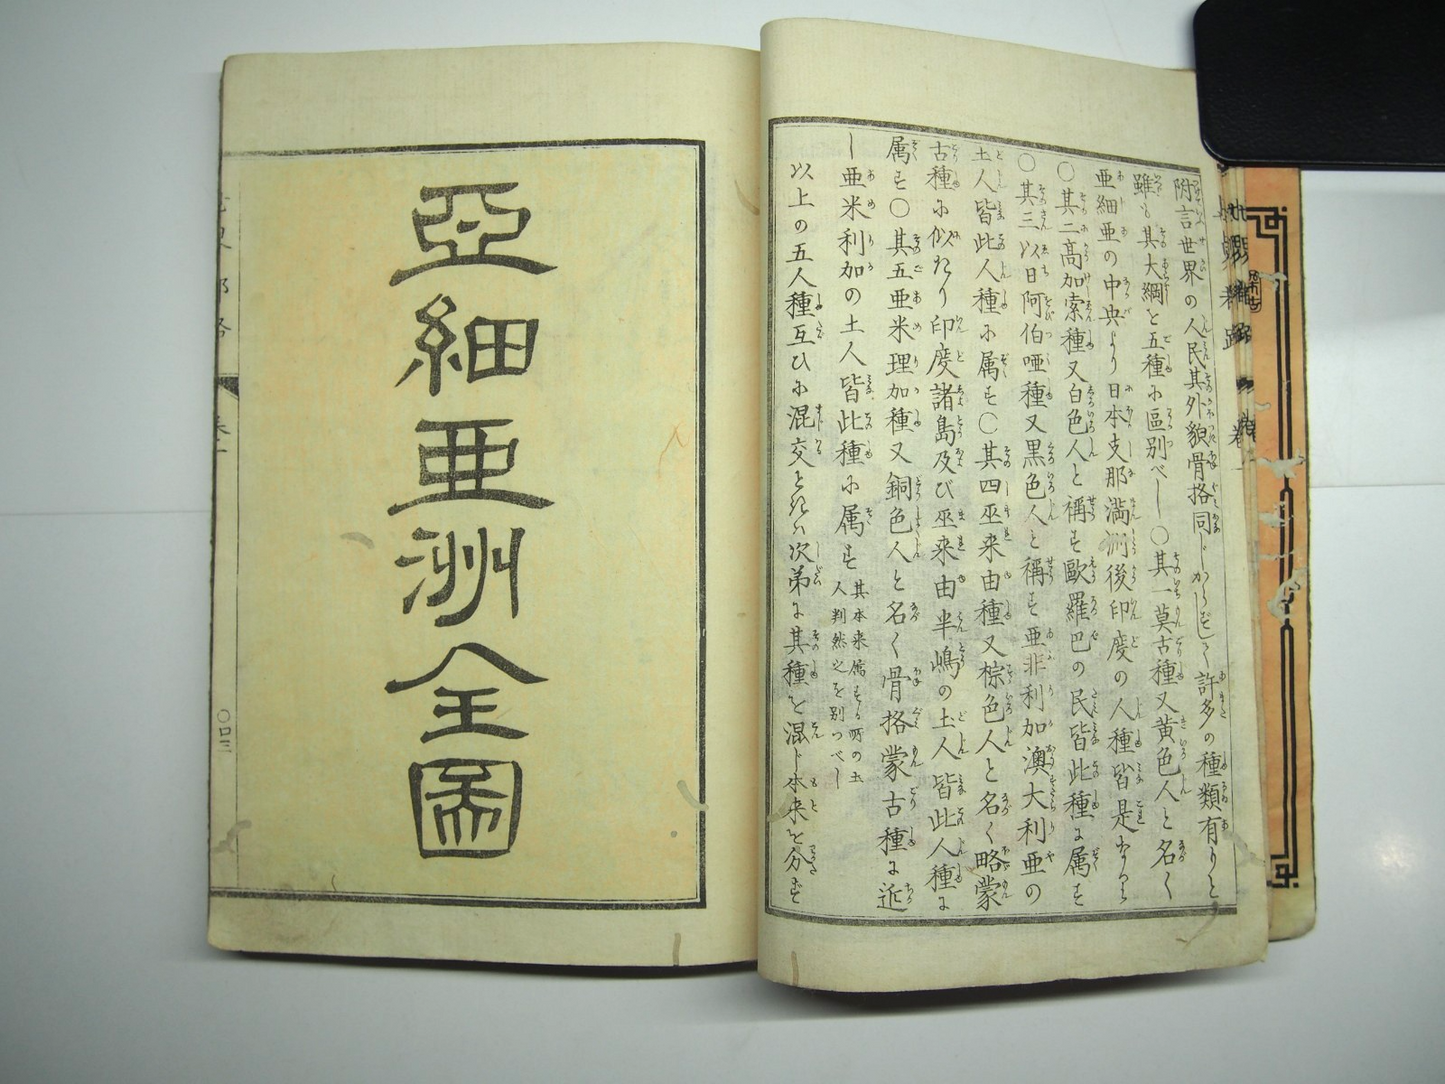 附言世界の人民其外貌骨格同じからずして許多の種類有りと
雖も其大綱を五種に區別べし〇其一莫古種又黄色人と名く
亜細亜の中央より日本支那満洲後印度の人種皆是なり
〇其二高加索種又白色人と稱す歐羅巴の民皆此種に属す
〇其三以日阿伯哑種又黒色人と稱す亜非利加澳大利亜の
土人皆此人種に属す〇其四巫来由種又棕色人と名く略蒙
古種に似たり印度諸島及び巫来由半嶋の土人皆此人種に
属す〇其五亜米理加種又銅色人と名く骨格蒙古種に近
し亜米利加の土人皆此種に属す
其本来属する所の土
人判然之を別つべし
以上の五人種互ひに混交とれハ次第に其種を混じ本来を分ず
亞細亜洲全圖